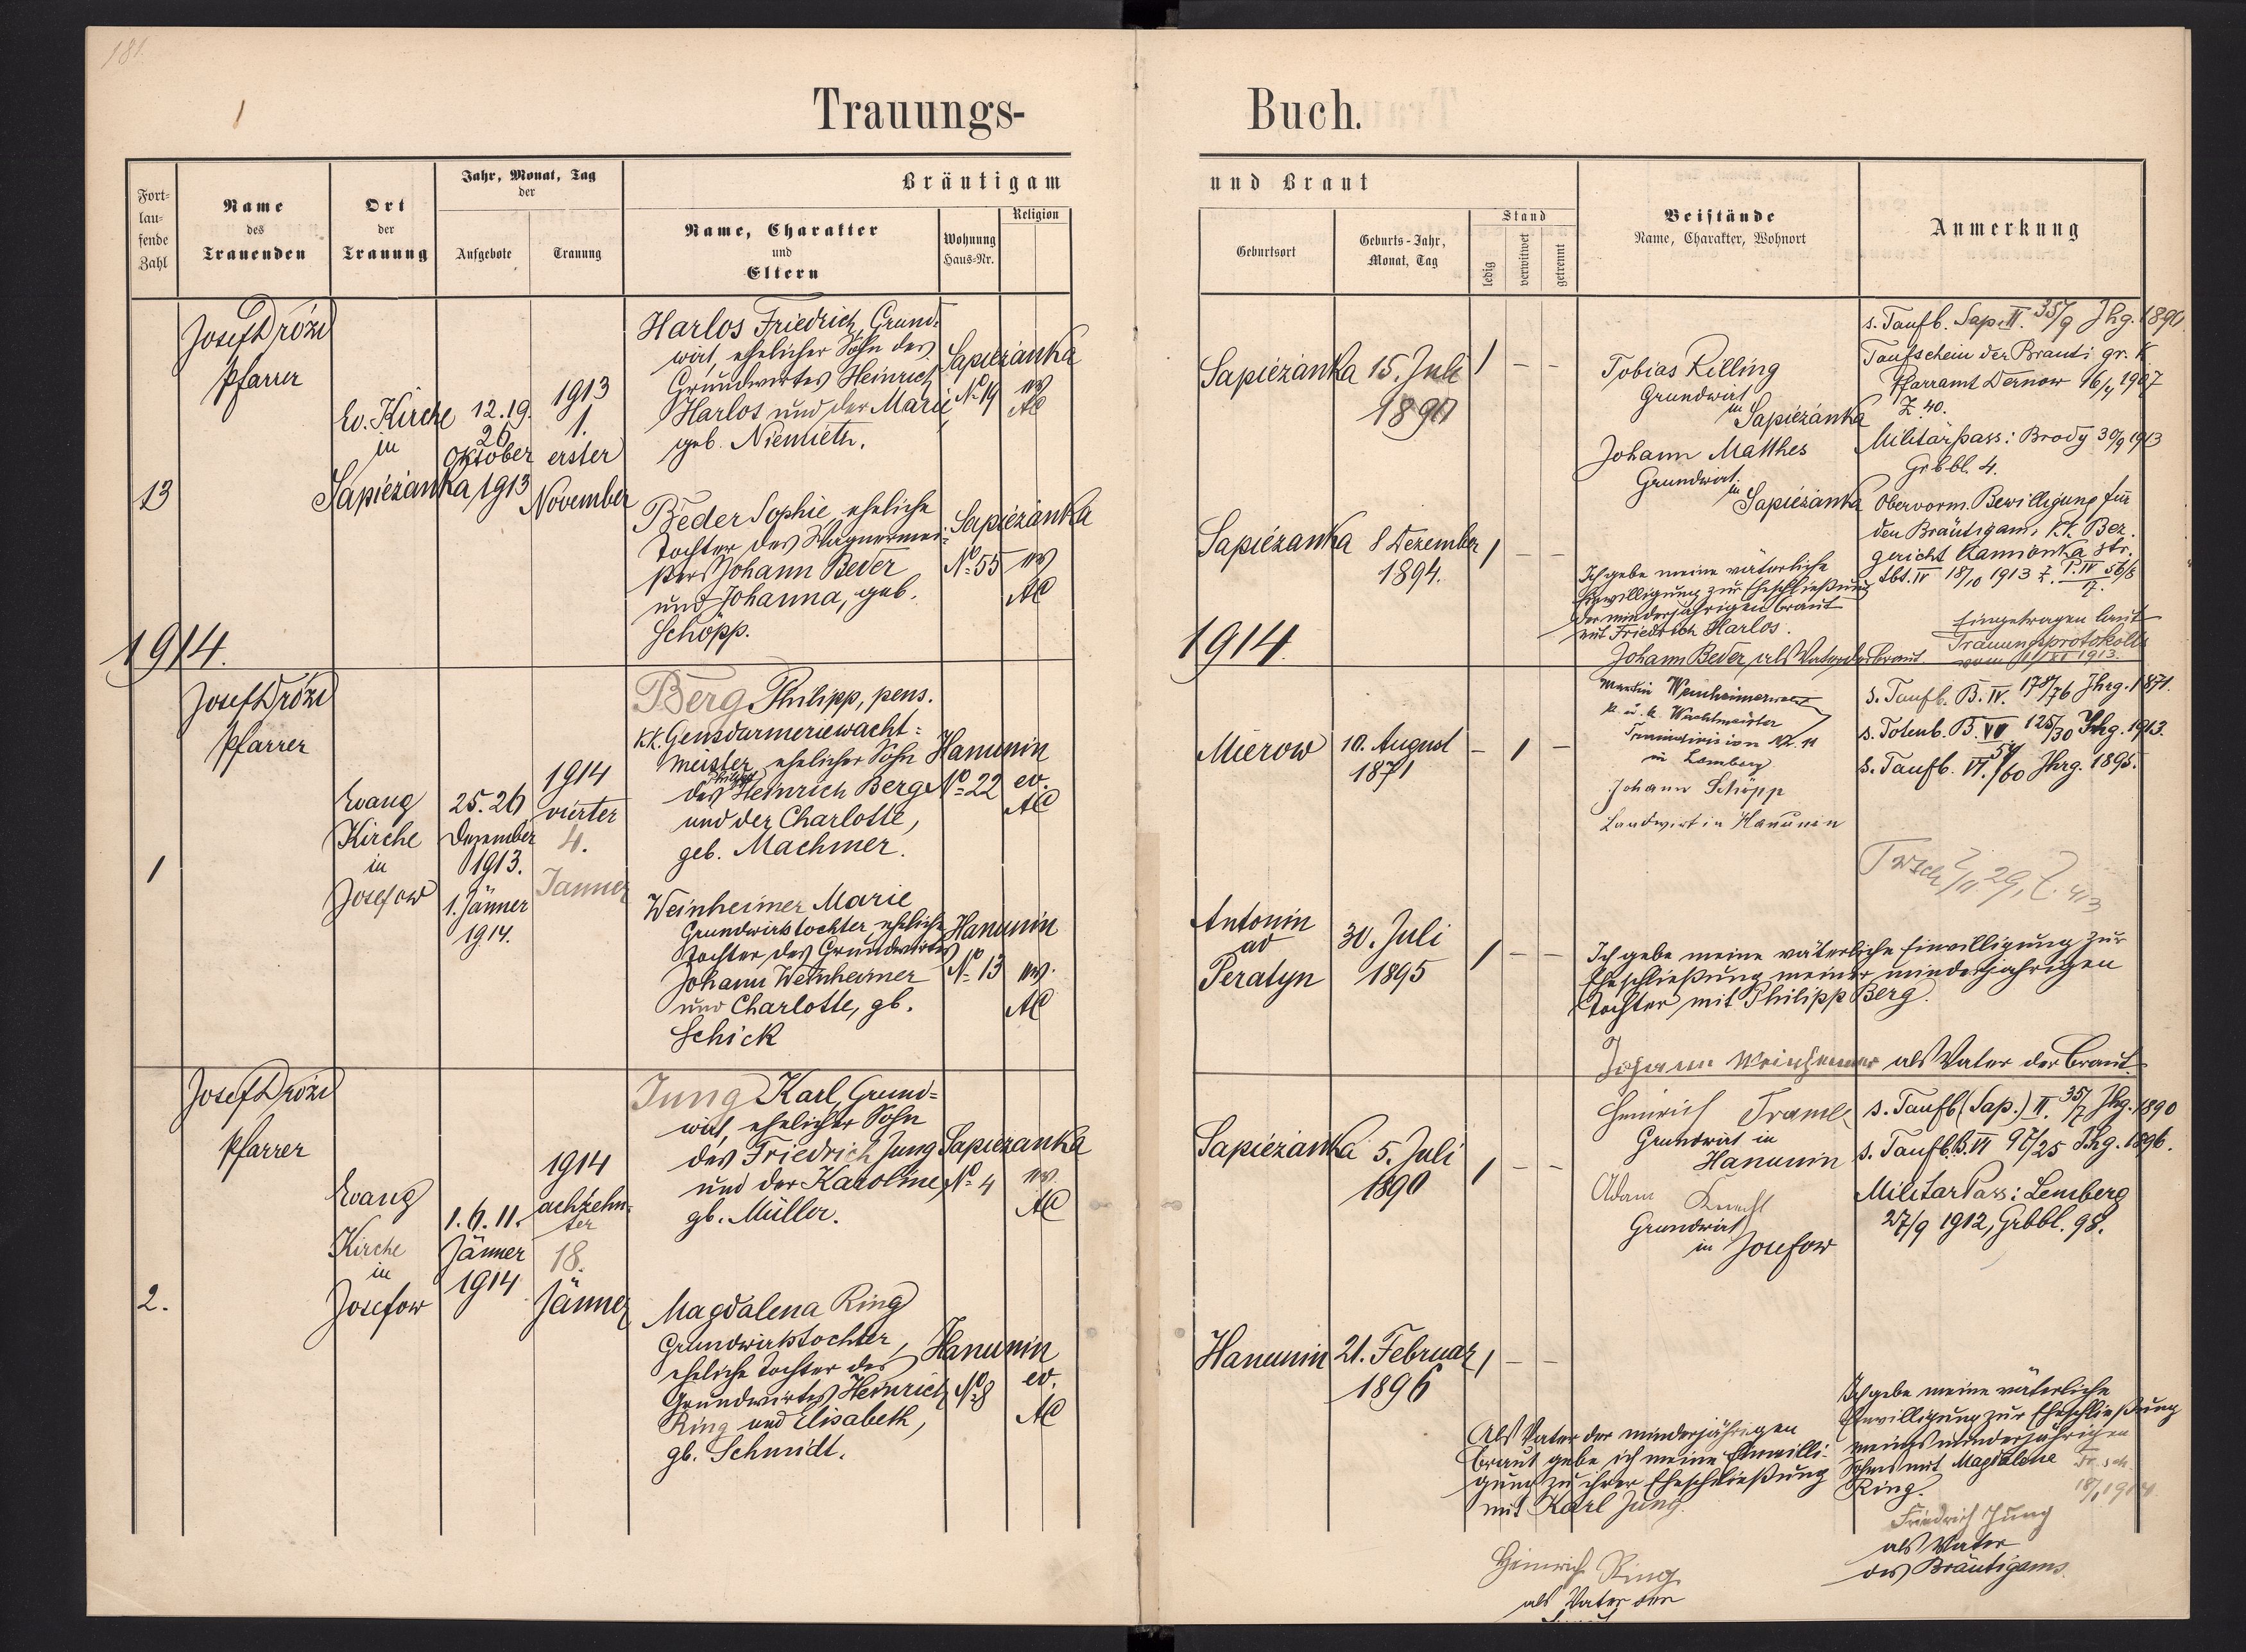 181.
1
Trauungs-
Buch.
Fort-
lau-
fende
Zahl
Name
des
Trauenden
Ort
der
Trauung
Jahr, Monat, Tag
der
Aufgebote
Trauung
Bräutigam
Name, Charakter
und
Eltern
Wohnung
Haus-Nr.
Religion
und Braut
Geburtsort
Geburts-Jahr,
Monat, Tag
Stand
ledig
verwitwet
getrennt
Beistände
Name, Charakter, Wohnort
Anmerkung
13
Josef Drózd
Pfarrer
Ev. Kirche
in
Sapieżanka
12. 19.
26
Oktober
1913
1913
1.
erster
November
Harlos Friedrich, Grund-
wirt, ehelicher Sohn des
Grundwirtes Heinrich
Harlos und der Marie,
geb. Niemietz.
Sapieżanka
No 19
ev
AC
Sapieżanka
15. Juli
1890
1 - -
Tobias Killing
Grundwirt
in Sapieżanka
Johann Matthes
Grundwirt
in Sapieżanka
s. Taufb. Sap. II. 35/9 Jhg. 1890
Taufschein der Braut: gr. K.
Pfarramt Dernow 16/4 1907
Z. 40.
Militärpass: Brody 30/9 1913
Grbbl. 4.
Obervorm. Bewilligung für
den Bräutigam: kk. Bez.
gericht Kamionka str.
Abt. IV 18/10 1913 Z. P. IV 56/8
17.
Eingetragen laut
Trauungsprotokolls
vom 1/XI 1913.
Beder Sophie, eheliche
Tochter des Wagnermei-
sters Johann Beder
und Johanna, geb.
Schöpp.
Sapieżanka
No 55
ev
AC
Sapieżanka
8 Dezember
1894.
1 - -
Ich gebe meine väterliche
Einwilligung zur Eheschließung
der minderjährigen Braut
mit Friedrich Harlos.
Johann Beder, als Vater der Braut
1914.
1914.
1
Josef Drózd
Pfarrer
Evang
Kirche
in
Josefow
25. 26
Dezember
1913.
1. Jänner
1914.
1914
vierter
4.
Jänner
Berg Philipp, pens.
kk. Gensdarmeriewacht-
meister, ehelicher Sohn
Philipp
des Heinrich Berg
und der Charlotte,
geb. Machmer.
Hanunin
No 22
ev.
AC
Mierow
10. August
1871
- 1 -
Martin Weinheimer
k. u. k. Wachtmeister
Traindivision Nr. 11
in Lemberg
Johann Schöpp
Landwirt in Hanunin
s. Taufb. B. IV. 178/76 Jhrg. 1871.
s. Totenb. B. VII 125/30 Jhg. 1913.
s. Taufb. VI. 54/60 Jhrg. 1895.
Weinheimer Marie
Grundwirtstochter, eheliche
Tochter des Grundwirtes
Johann Weinheimer
und Charlotte, gb.
Schick
Hanunin
No 13
ev.
AC
Antonin
ad
Peratyn
30. Juli
1895
1 - -
Ich gebe meine väterliche Einwilligung zur
Eheschließung meiner minderjährigen
Tochter mit Philipp Berg.
Johann Weinheimer als Vater der Braut
2.
Josef Drózd
Pfarrer
Evang
Kirche
in
Josefow
1. 6. 11.
Jänner
1914
1914
achtzehn-
ter
18.
Jänner
Jung Karl, Grund-
wirt, ehelicher Sohn
des Friedrich Jung
und der Karoline,
gb. Müller.
Sapieżanka
No 4
ev.
AC
Sapieżanka
5. Juli
1890
1 - -
Heinrich
Grundwirt in
Hanunin
Adam Knecht
Grundwirt
in Josefow
s. Taufb. (Sap.) II. 35/7 Jhg. 1890
s. Taufb. B. VI 97/25 Jhg. 1896.
MilitärPass: Lemberg
27/9 1912, Grbbl. 98.
Magdalena Ring
Grundwirtstochter,
eheliche Tochter des
Grundwirtes Heinrich
Ring und Elisabeth,
gb. Schmidt.
Hanunin
No 8
ev.
AC
Hanunin
21. Februar
1896
1 - -
Als Vater der minderjährigen
Braut gebe ich meine Einwilli-
gung zu ihrer Eheschließung
mit Karl Jung.
Heinrich Ring
als Vater der
Ich gebe meine väterliche
Einwilligung zur Eheschließung
meines minderjährigen
Sohnes mit Magdalene
Ring.
Tr. sch.
18/1 1914.
Friedrich Jung
als Vater
des Bräutigams.